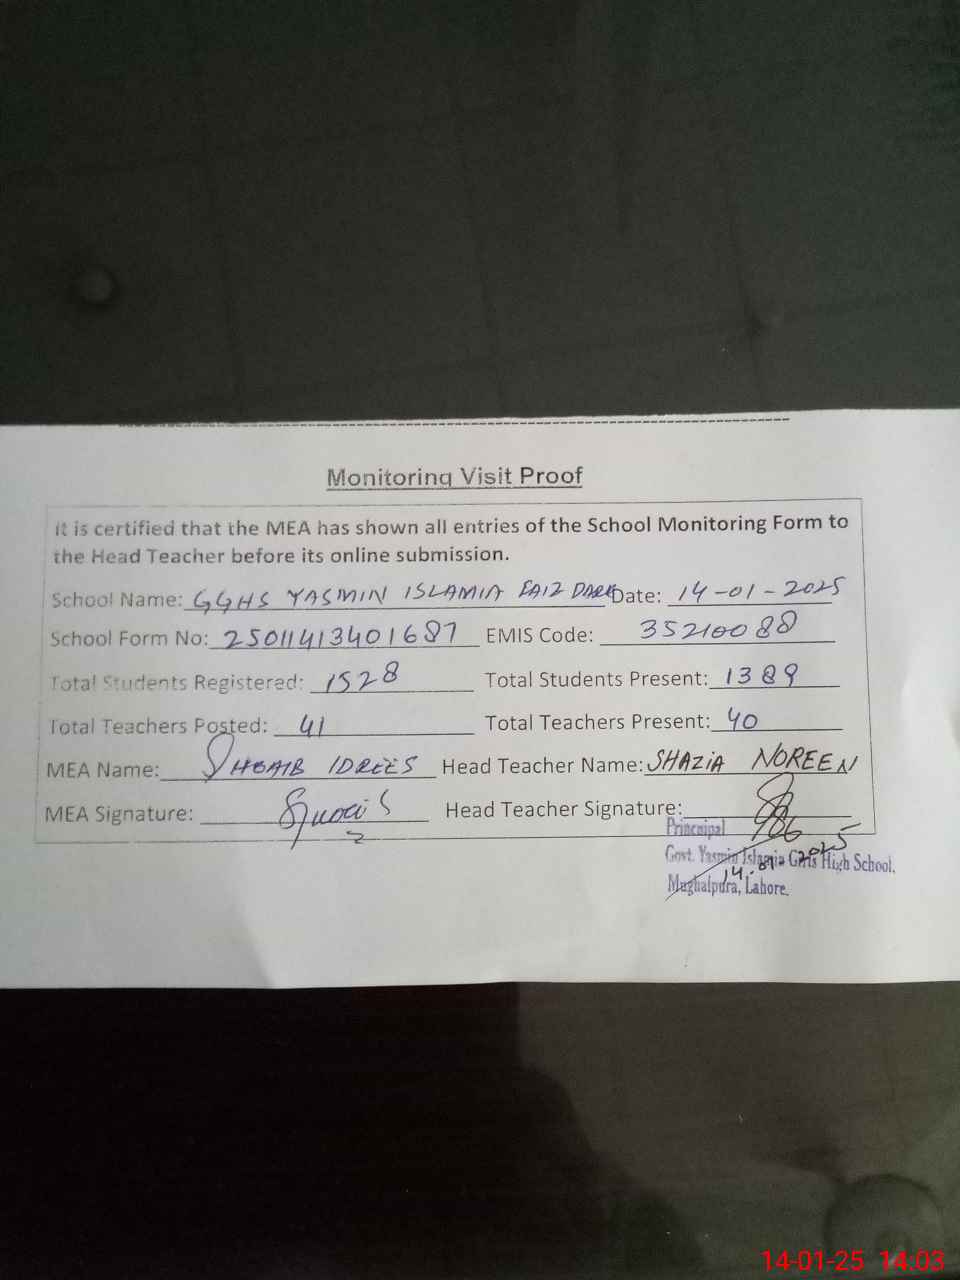 Monitoring Visit Proof
It is certified that the MEA has shown all entries of the School Monitoring Form to
the Head Teacher before its online submission.
School Name: GGHS YASMIN ISLAMIA FAIZ Date: 14-01-2025
School Form No: 25011413401687 EMIS Code: 35210088
Total Students Registered: 1528 Total Students Present: 1389
Total Teachers Posted: 41 Total Teachers Present: 40
MEA Name: SHOAIB IDREES Head Teacher Name: SHAZIA NOREEN
MEA Signature: Head Teacher Signature:
Principal
Govt. Yasmin Islamia Girls High School,
Mughalpura, Lahore.
14.01.2025
14-01-25 14:03